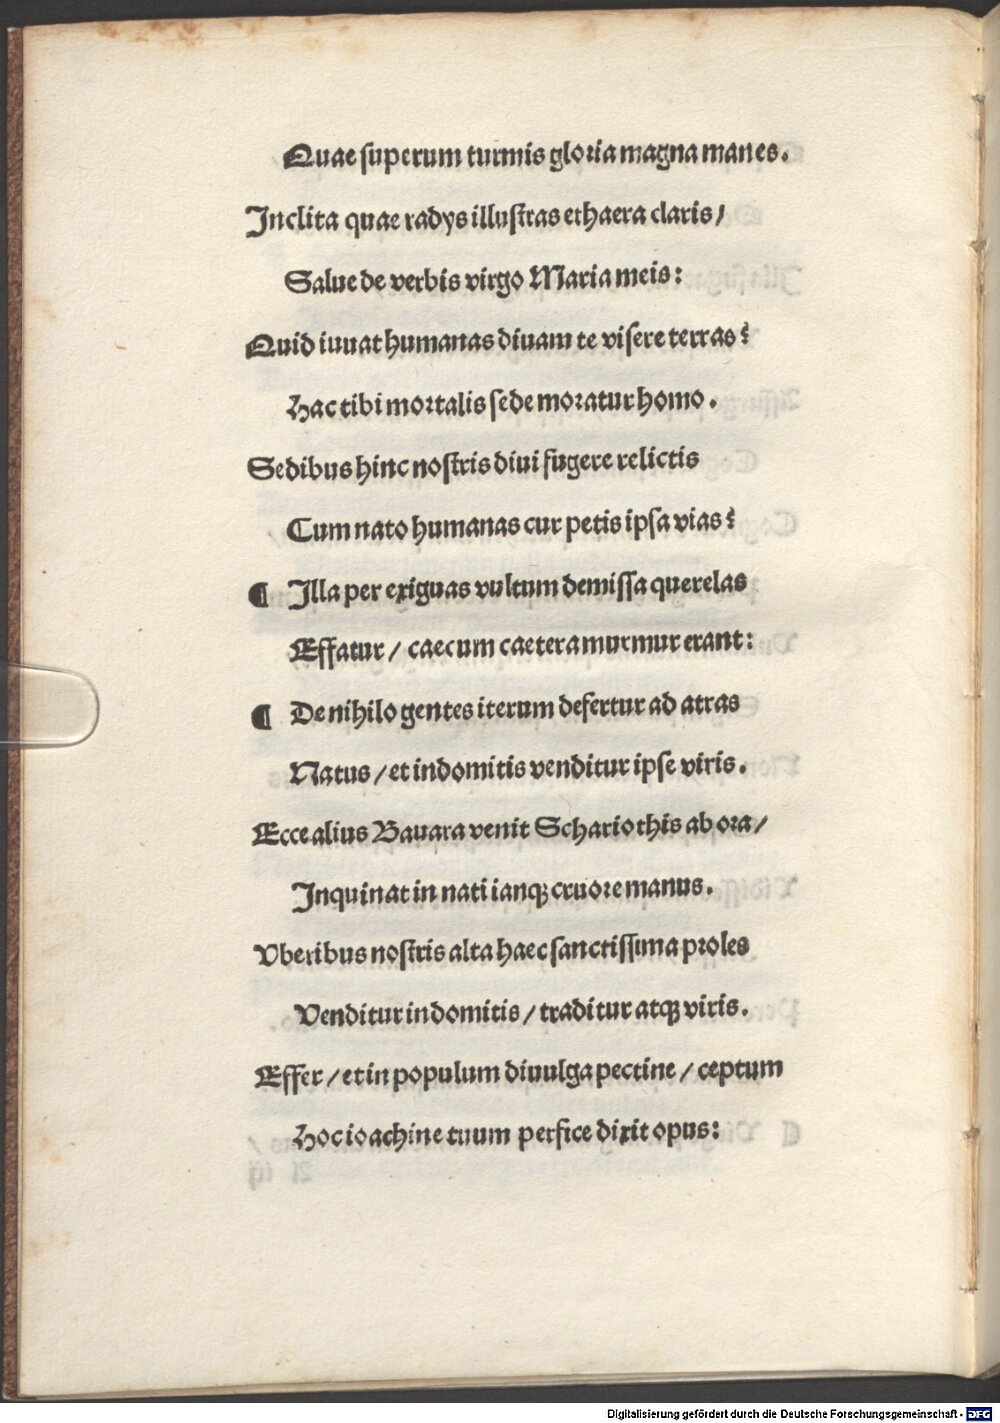 Quae superum turmis gloria magna manes.
Inclita quae radys illustras ethaera claris/
Salue de verbis virgo Maria meis:
Quid iuuat humanas diuam te visere terras?
Hac tibi mortalis sede moratur homo.
Sedibus hinc nostris diui fugere relictis
Cum nato humanas cur petis ipsa vias?
¶ Illa per exiguas vultum demissa querelas
Effatur/ caecum caetera murmur erant:
¶ De nihilo gentes iterum defertur ad atras
Natus/ et indomitis venditur ipse viris.
Ecce alius Bauara venit Schariothis ab ora/
Inquinat in nati ianqꝫ cruore manus.
Vberibus nostris alta haec sanctissima proles
Venditur indomitis/ traditur atqꝫ viris.
Effer/ et in populum diuulga pectine/ ceptum
Hoc ioachine tuum perfice dixit opus:
Digitalisierung gefördert durch die Deutsche Forschungsgemeinschaft - DFG